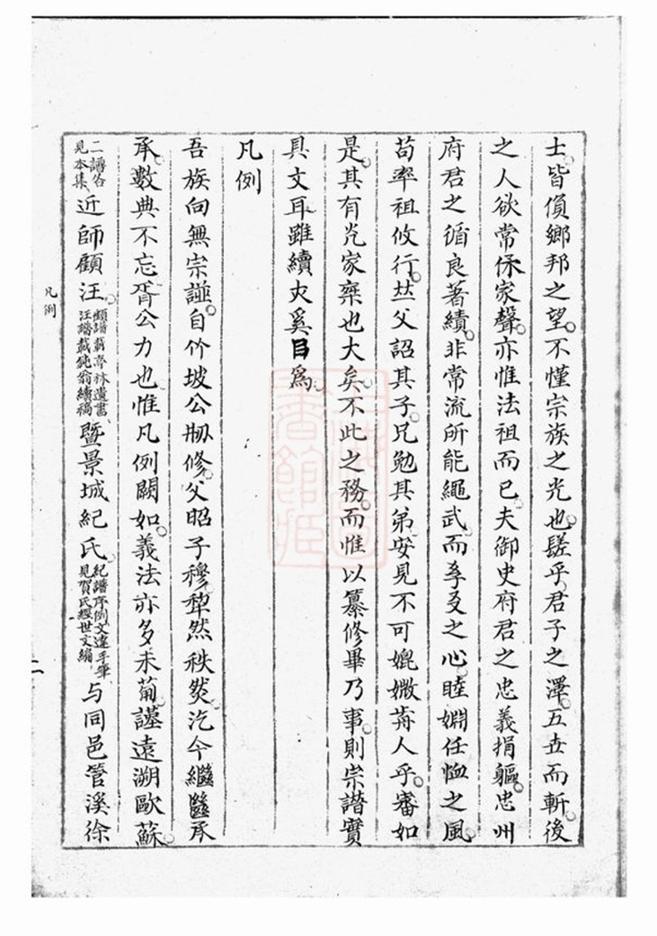 士皆負鄉邦之望不僅宗族之光也嗟乎君子之澤五世而斬後
之人欲常保家聲亦惟法祖而已夫御史府君之忠義捐軀忠州
府君之循良著績非常流所能繩武而孝友之心睦婣任恤之風
苟率祖攸行父詔其子兄勉其弟安見不可媲媺前人乎審如
是其有光家乘也大矣不此之務而惟以纂修畢乃事則宗譜實
具文耳雖續夊奚目為
凡例
吾族向無宗譜自竹坡公刱修父昭子穆犂然秩然迄今繼繼承
承數典不忘胥公力也惟凡例闕如義法亦多未葡謹遠溯歐蘇
二譜名見本集近師顧汪顧譜載亭林遺書汪譜載鈍翁續稿暨景城紀氏紀譜序例文達手筆見賀氏經世文編与同邑管溪徐
凡例
二